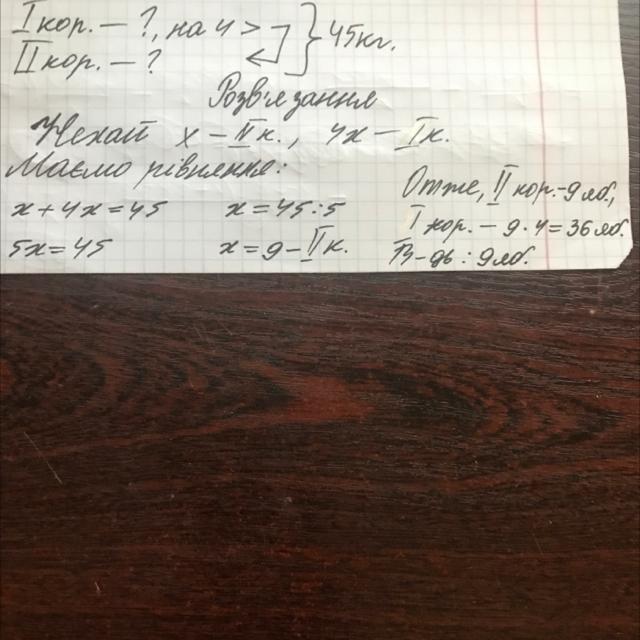 I кор. – ?, на 4 > } 45 кг.
II кор. – ?
Розв'язання
Нехай x – II к., 4x – I к.
Маємо рівняння:
x + 4x = 45
5x = 45
x = 45 : 5
x = 9 – II к.
Отже, II кор. – 9 яб.,
I кор. – 9 · 4 = 36 яб.
В-дь: 9 яб.